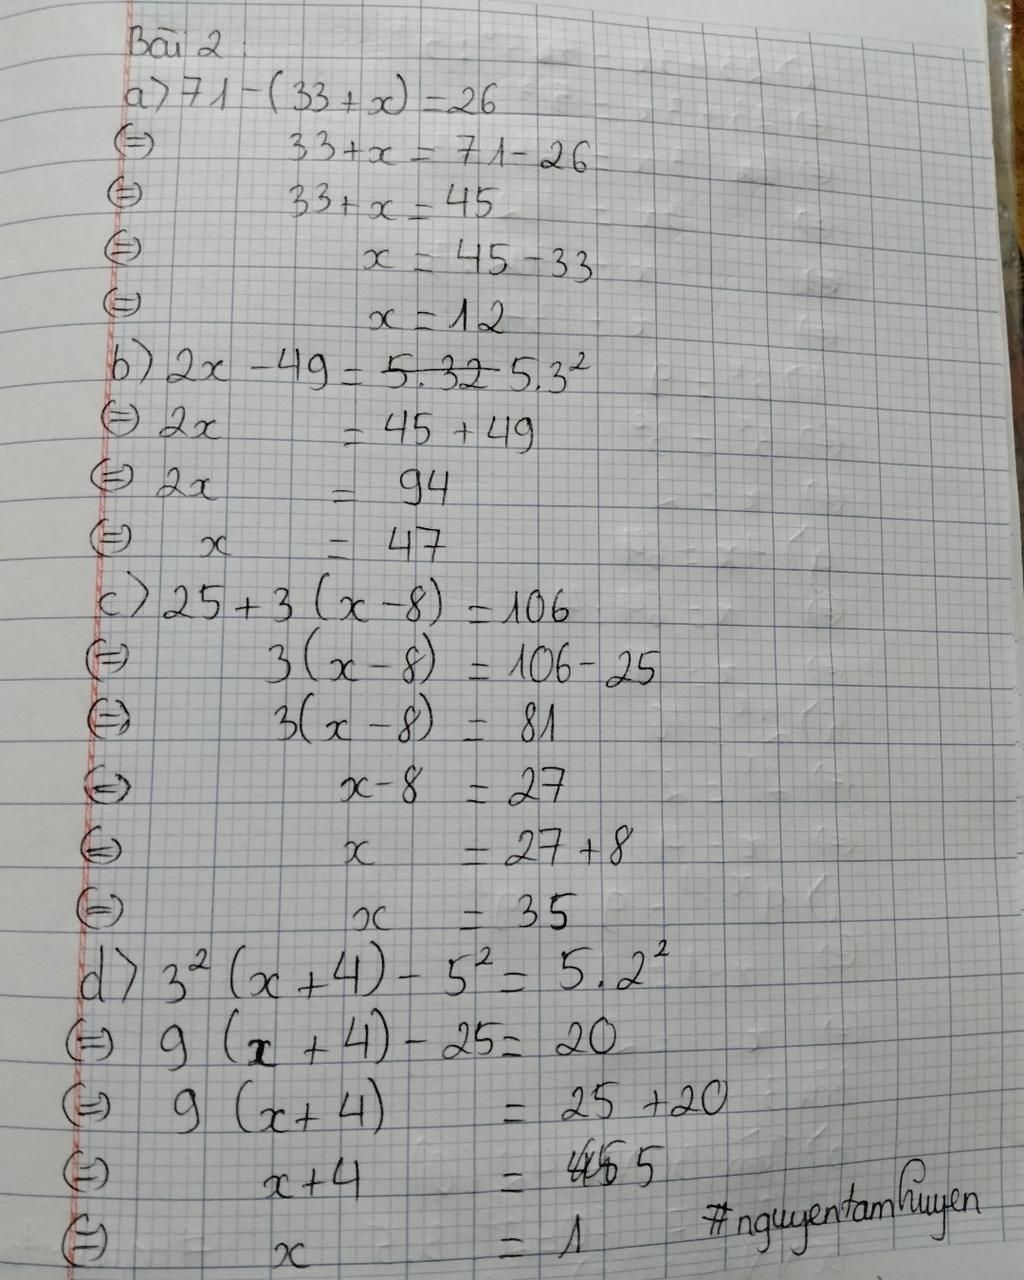 Bài 2
a) 71 - (33 + x) = 26
(=) 33 + x = 71 - 26
(=) 33 + x = 45
(=) x = 45 - 33
(=) x = 12
b) 2x - 49 = 5.32 5.3²
(=) 2x = 45 + 49
(=) 2x = 94
(=) x = 47
c) 25 + 3 (x - 8) = 106
(=) 3 (x - 8) = 106 - 25
(=) 3(x - 8) = 81
(=) x - 8 = 27
(=) x = 27 + 8
(=) x = 35
d) 3² (x + 4) - 5² = 5.2²
(=) 9 (x + 4) - 25 = 20
(=) 9 (x + 4) = 25 + 20
(=) x + 4 = 5
(=) x = 1
#nguyentamhuyen